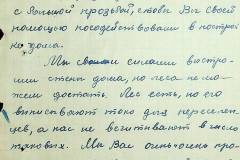 с большой прозьбой, чтобы Вы своей
помощью посодействовали в построй
ке дома.
Мы своими силами выстро-
или стены дома, но леса не мо-
жем достать. Лес есть, но его
выписывают токо для переселен-
цев, а нас не всчитывают в число
таковых. Мы Вас очень очень про-